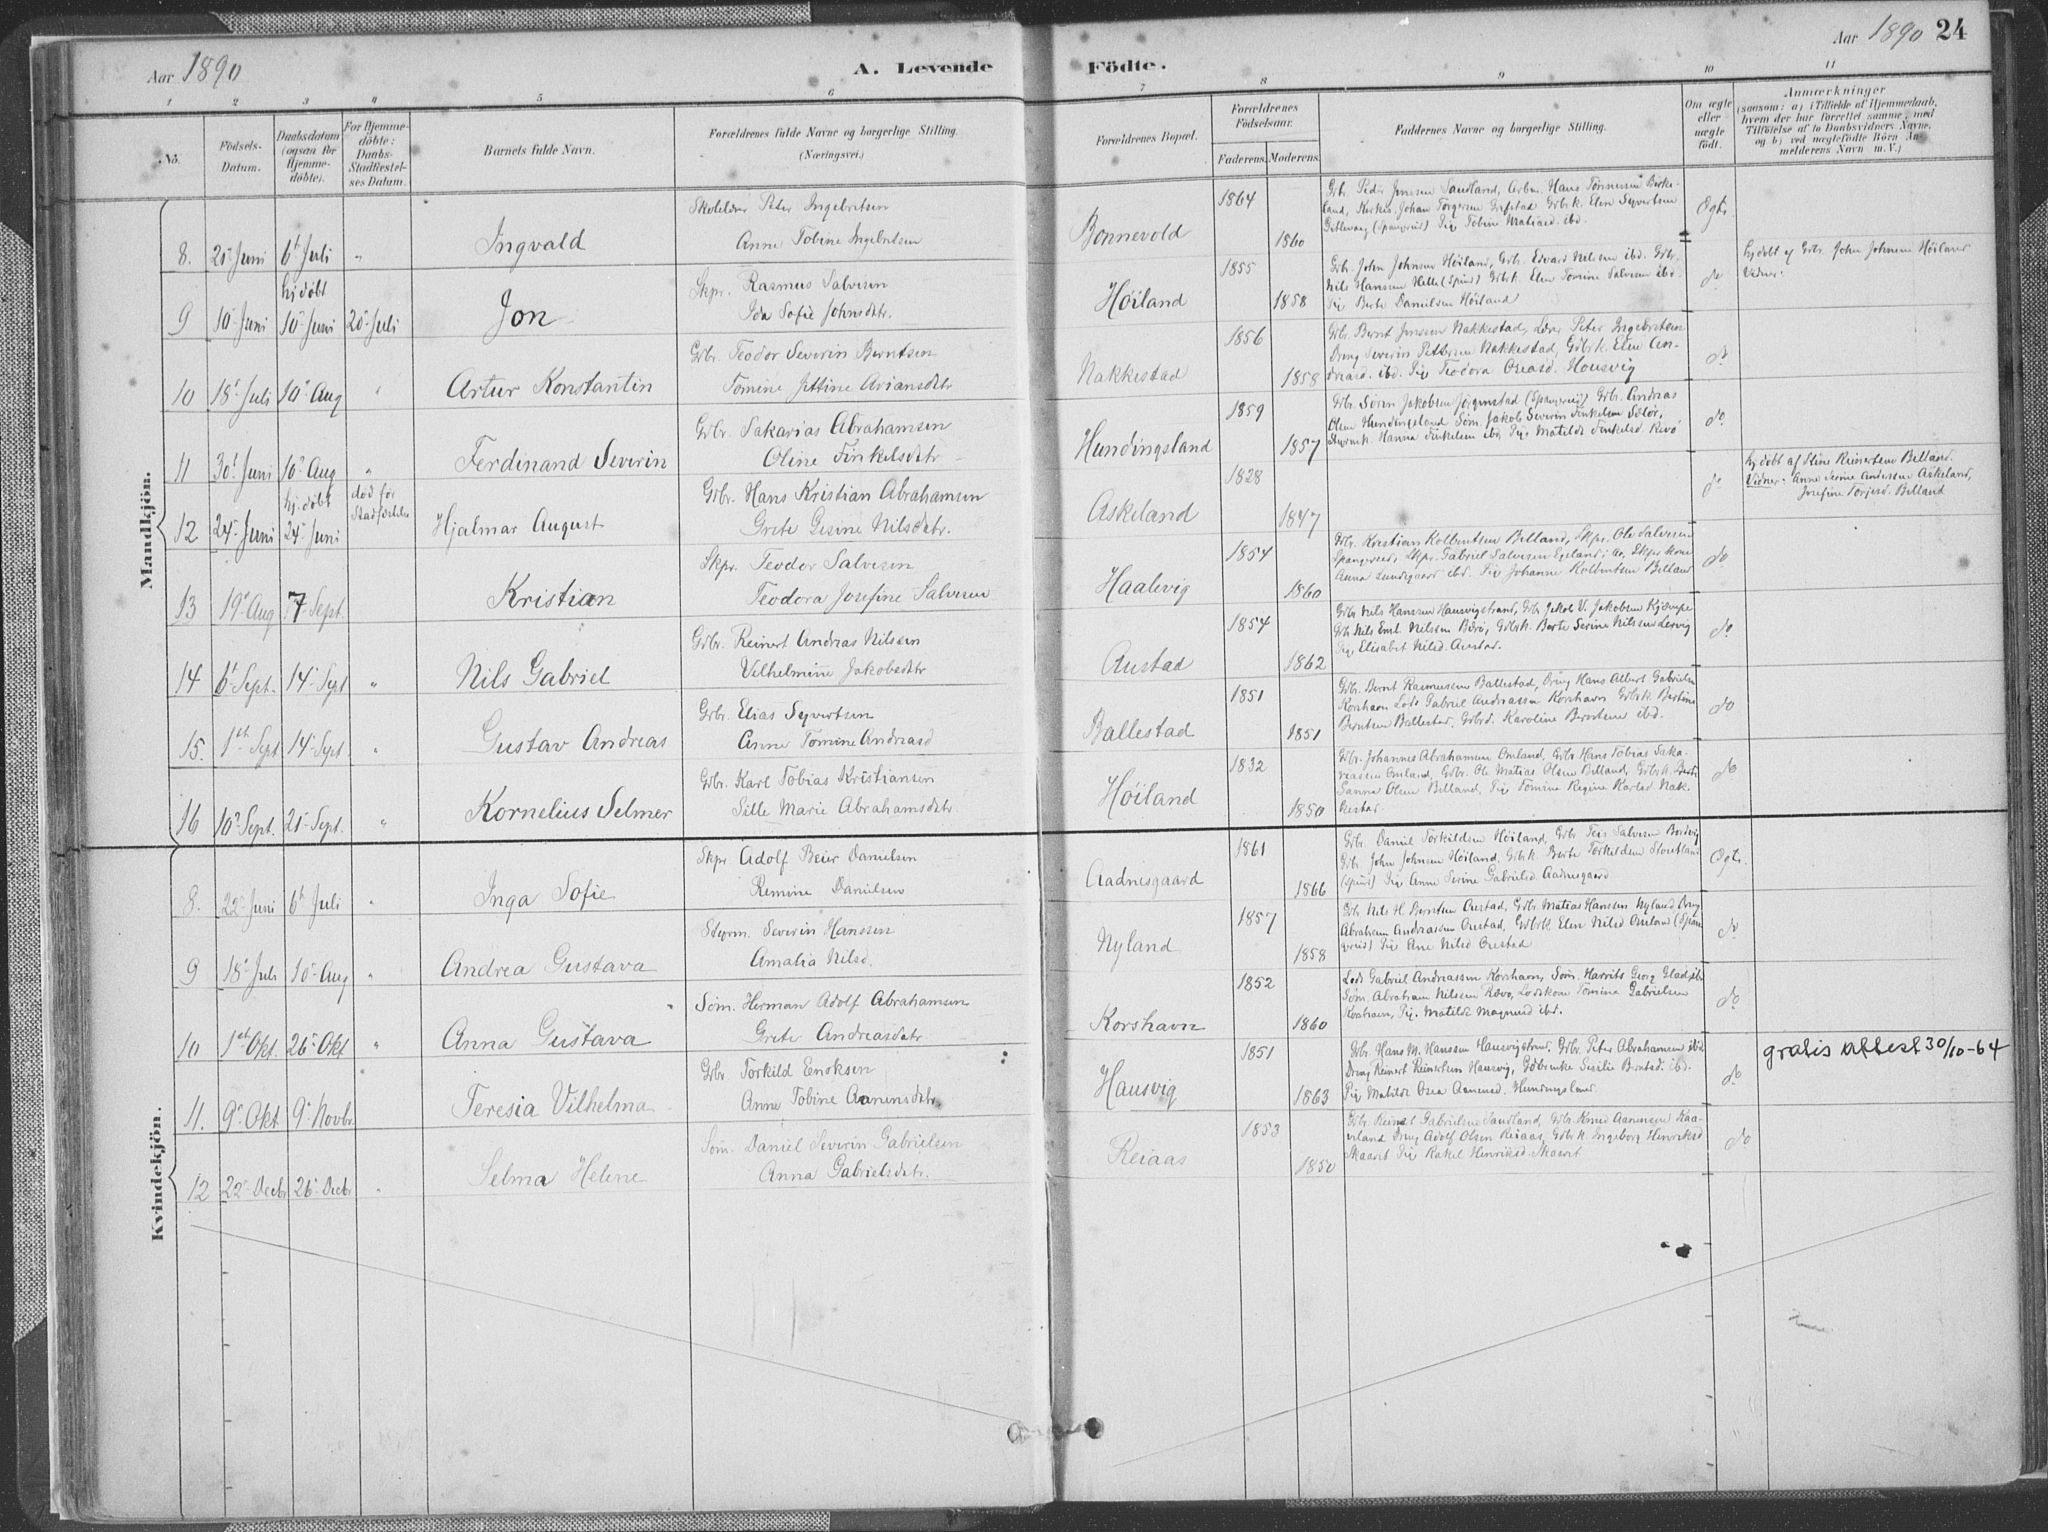 Aar 1890
A. Levende Födte.
Aar 1890 24
1 2 3 4 5 6 7 8 9 10 11
No.
Födsels-
Datum.
Daabsdatum
(ogsaa for
Hjemme-
döbte).
For Hjemme-
döbte:
Daabs-
Stadfæstel-
ses Datum.
Barnets fulde Navn.
Forældrenes fulde Navne og borgerlige Stilling.
(Næringsvei.)
Forældrenes Bopæl.
Forældrenes
Födselsaar.
Faderens. Moderens.
Faddernes Navne og borgerlige Stilling.
Om ægte
eller
uægte
födt.
Anmærkninger
(saasom: a) i Tilfælde af Hjemmedaab,
hvem der har forrettet samme, med
Tilföielse af to Daabsvidners Navne,
og b) ved uægtefödte Börn An-
melderens Navn m. V.)
Mandkjön.
Skolelærer Peter Ingebritsen
8. 21 Juni 6 Juli " Ingvald
Anne Tobine Ingebritsen
Bonnevold 1864 1860
Grb. Peder Jenssen Sandland, Arbm. Hans Tönnessen Birke-
land, Kirkes. Johan Torgersen Grefstad Grbk. Elen Syvertsen
(Spangereid) Pig Tobine Matiasd. ibd.
Ægte
hj.döbt
9 10 Juni 10 Juni 20 Juli Jon
Skpr. Rasmus Salvesen
Ida Sofie Johnsdtr.
Höiland 1855 1858
Grb. John Johnsen Höiland, Grb. Edvard Nilssen ibd. Grb.
Nils Hanssen Helle (Spind) Grbk. Elen Tomine Salvesen ibd.
Pig Berte Danielsen Höiland
do
hj.döbt af Grb. John Johnsen Höiland
Vidner:
10 18 Juli 10 Aug " Artur Konstantin
Grbr. Teodor Severin Berntsen
Tomine Jettine Ariansdtr
Nakkestad 1856 1858
Grb. Bernt Jenssen Nakkestad, Lærer Peter Ingebritsen
Dreng Severin Pettersen Nakkestad, Grbk. Elen An-
dreasd. ibd. Pig Teodora Oreasd. Housvig
do
11 30 Juni 10 Aug " Ferdinand Severin
Grbr. Sakarias Abrahamsen
Oline Finkelsdtr
Hundingsland 1859 1857
Grb. Sören Jakobsen Jörgenstad (Spangereid) Grb. Andreas
Olsen Hundingsland Söm. Jakob Severin Finkelsen Selör,
Styrmk. Hanna Finkelsen ibd, Pig Matilde Finkelsd. Revö
do
hj.döbt
12 24 Juni 24 Juni död för Stadfæstelse Hjalmar August
Grbr. Hans Kristian Abrahamsen
Grete Gesine Nilsdtr.
Askeland 1828 1847
do
hj.döbt af Stine Reinertsen Billand.
Vidner: Anne Serine Andersen Askeland,
Josefine Torjesd. Billand
13 19 Aug 7 Sept. Kristian
Skpr. Teodor Salvesen
Teodora Josefine Salvesen
Haalevig 1854 1860
Grb. Kristian Kolbentsen Billand, Skpr. Ole Salvesen
Spangereid, Skpr. Gabriel Salvesen Egeland, Skpr kone
Anna Lundegaard ibd. Pig Johanne Kolbentsen Billand
do
14 6 Sept. 14 Sept " Nils Gabriel
Grbr. Reinert Andreas Nilssen
Vilhelmine Jakobsdtr
Austad 1854 1862
Grb Nils Hanssen Hausvigstrand, Grb Jakob V. Jakobsen Kjörrepe
Grb Nils Eml. Nilssen Berö, Grbk. Berte Serine Nilssen Lervig
Pig Elisabet Nilsd. Austad.
do
15. 1ste Sept 14 Sept. " Gustav Andreas
Grbr. Elias Syvertsen
Anne Tomine Andreasd
Ballestad 1851 1851
Grb. Bernt Rasmussen Ballestad, Dreng Hans Albert Gabrielsen
Korshavn Lods Gabriel Andreassen Korshavn Grbk. Bertine
Berntsen Ballestad, Grbrd. Karoline Berntsen ibd.
do
16 10 Sept. 21 Sept. " Kornelius Selmer
Grbr. Karl Tobias Kristiansen
Sille Marie Abrahamsdtr.
Höiland 1832 1850
Grb. Johannes Abrahamsen Omland, Grb Hans Tobias Saka-
reassen Omland, Grbr. Ole Matias Olsen Billand, Grbk. Berte
Sanna Olsen Billand, Pig Tomine Regine Karlsd. Nak-
kestad.
do
Kvindekjön.
8. 22 Juni 6 Juli " Inga Sofie
Skpr Adolf Beier Danielsen
Remine Danielsen
Aadnesgaard 1861 1866
Grb. Daniel Torkildsen Höiland, Grb Teis Salvesen Bordvig
Grb. John Johnsen Höiland, Grbk. Berte Torkildsen Stoutland
(Spind) Pig Anne Serine Gabrielsd. Aadnesgaard
Ægte.
9 18 Juli 10 Aug " Andrea Gustava
Styrm. Severin Hanssen
Amalia Nilsd.
Nyland 1857 1858
Grb Nils H Berntsen Ourstad, Grb. Matias Hanssen Nyland Dreng
Abraham Andreassen Ourstad, Grbk Elen Nilsd Omland (Span-
gereid) Pig Ane Nilsd Ourstad
do
10 1ste Okt. 26 Okt " Anna Gustava
Söm. Herman Adolf Abrahamsen
Grete Andreasdatr
Korshavn 1852 1860
Lods Gabriel Andreassen Korshavn, Söm. Harrits Georg Glad, ibd
Söm. Abraham Nilssen Rævö, Lodskone Tomine Gabrielsen
Korshavn, Pig. Matilde Magnusd ibd.
do
11. 9 Okt 9 Novbr. Teresia Vilhelma
Grbr Torkild Enoksen
Anne Tobine Aanensdtr.
Hausvig 1851 1863
Grb. Hans M. Hanssen Hausvigstrand. Grb. Peter Abrahamsen ibd
Dreng Reinert Reinertsen Hausvig, Grbenke Sesilie Berntsd. ibd.
Pig Matilde Osea Aanensd. Hundingsland.
do
gratis attest 30/10-64
12 22 Decbr 26 Decbr " Selma Helene
Söm. Daniel Severin Gabrielsen
Anna Gabrielsdatr.
Reiaas 1853 1850
Grb. Reinert Gabrielsen Sandland, Grb. Knud Aanensen Kaa-
reland Dreng Adolf Olsen Reiaas, Grbk. Ingeborg Henriksd
Skaarit Pig Rakel Henriksd. Skaarit
do